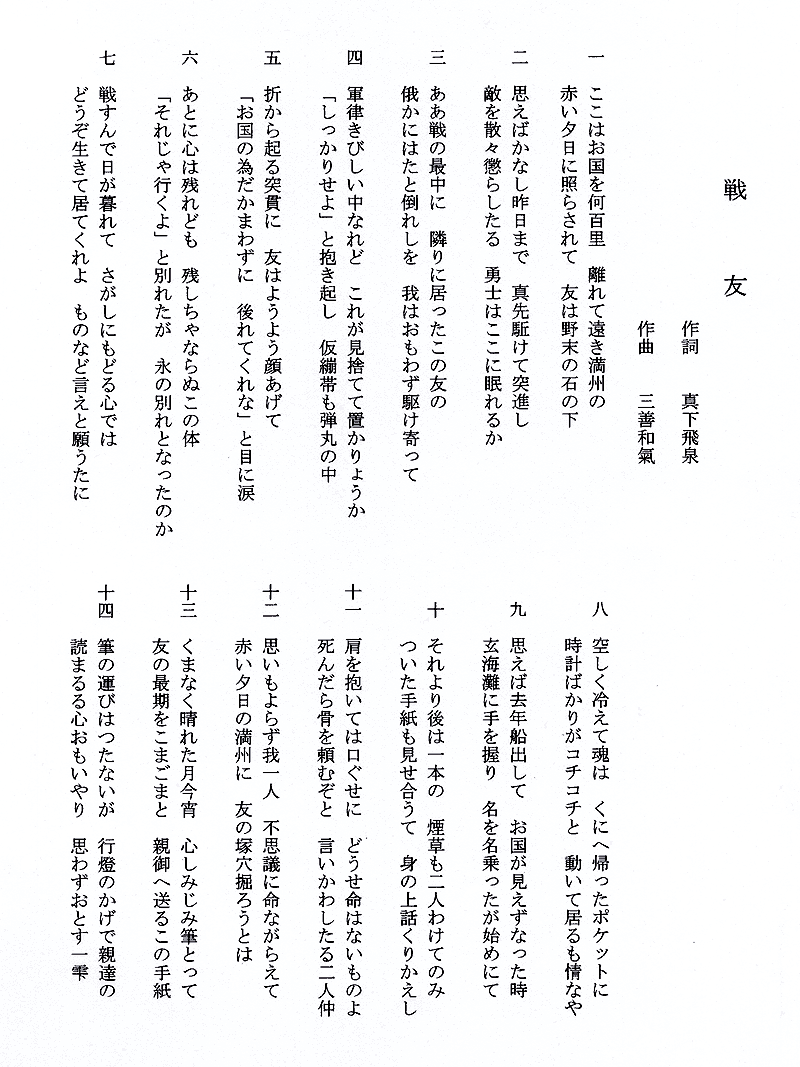 戦友
作詞 真下飛泉
作曲 三善和氣
一 ここはお国を何百里 離れて遠き満州の
赤い夕日に照らされて 友は野末の石の下
二 思えばかなし昨日まで 真先駈けて突進し
敵を散々懲らしたる 勇士はここに眠れるか
三 ああ戦の最中に 隣りに居ったこの友の
俄かにはたと倒れしを 我はおもわず駆け寄って
四 軍律きびしい中なれど これが見捨てて置かりょうか
「しっかりせよ」と抱き起し 仮繃帯も弾丸の中
五 折から起る突貫に 友はようよう顔あげて
「お国の為だかまわずに 後れてくれな」と目に涙
六 あとに心は残れども 残しちゃならぬこの体
「それじゃ行くよ」と別れたが 永の別れとなったのか
七 戦すんで日が暮れて さがしにもどる心では
どうぞ生きて居てくれよ ものなど言えと願うたに
八 空しく冷えて魂は くにへ帰ったポケットに
時計ばかりがコチコチと 動いて居るも情なや
九 思えば去年船出して お国が見えずなった時
玄海灘に手を握り 名を名乗ったが始めにて
十 それより後は一本の 煙草も二人わけてのみ
ついた手紙も見せ合うて 身の上話くりかえし
十一 肩を抱いては口ぐせに どうせ命はないものよ
死んだら骨を頼むぞと 言いかわしたる二人仲
十二 思いもよらず我一人 不思議に命ながらえて
赤い夕日の満州に 友の塚穴掘ろうとは
十三 くまなく晴れた月今宵 心しみじみ筆とって
友の最期をこまごまと 親御へ送るこの手紙
十四 筆の運びはつたないが 行燈のかげで親達の
読まるる心おもいやり 思わずおとす一雫